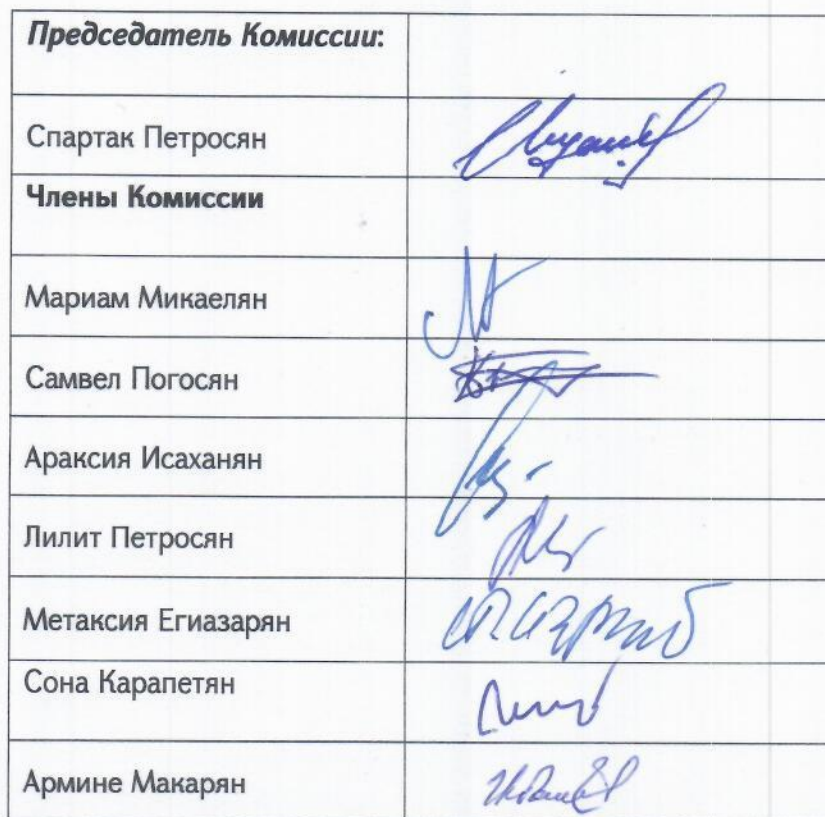 Председатель Комиссии:
Спартак Петросян
Члены Комиссии
Мариам Микаелян
Самвел Погосян
Араксия Исаханян
Лилит Петросян
Метаксия Егиазарян
Сона Карапетян
Армине Макарян